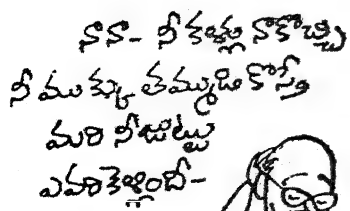 నానా- నీ కళ్లు నాకొచ్చి
నీ ముక్కు తమ్ముడి కొస్తే
మరి నీజుట్టు
ఎవరికెళ్లిందీ-